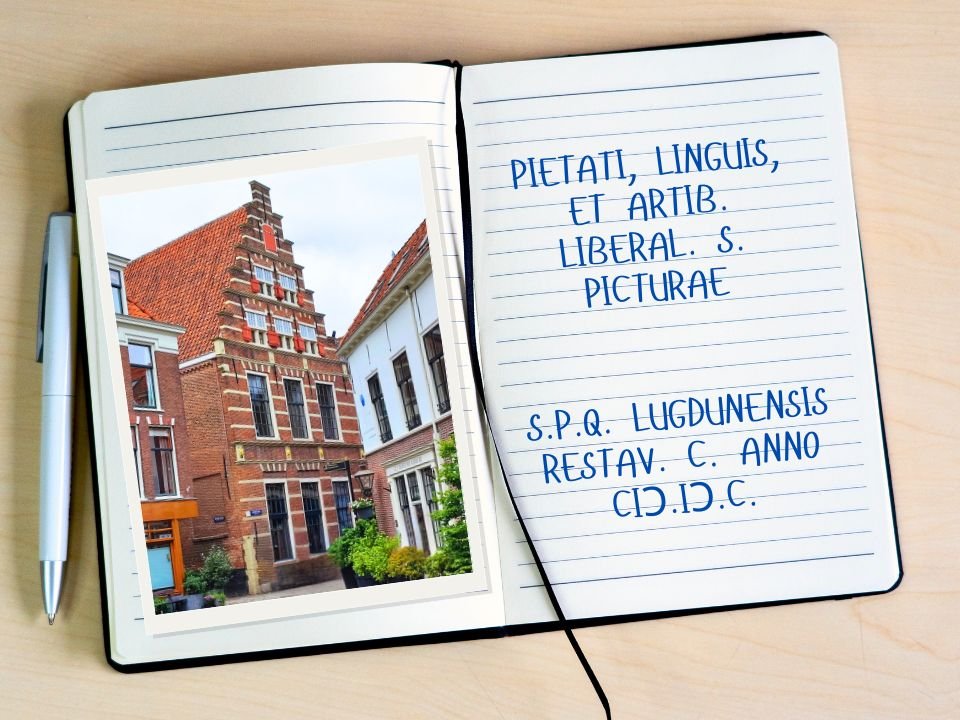 PIETATI, LINGUIS,
ET ARTIB.
LIBERAL. S.
PICTURAE
S.P.Q. LUGDUNENSIS
RESTAV. C. ANNO
CIↃ.IↃ.C.